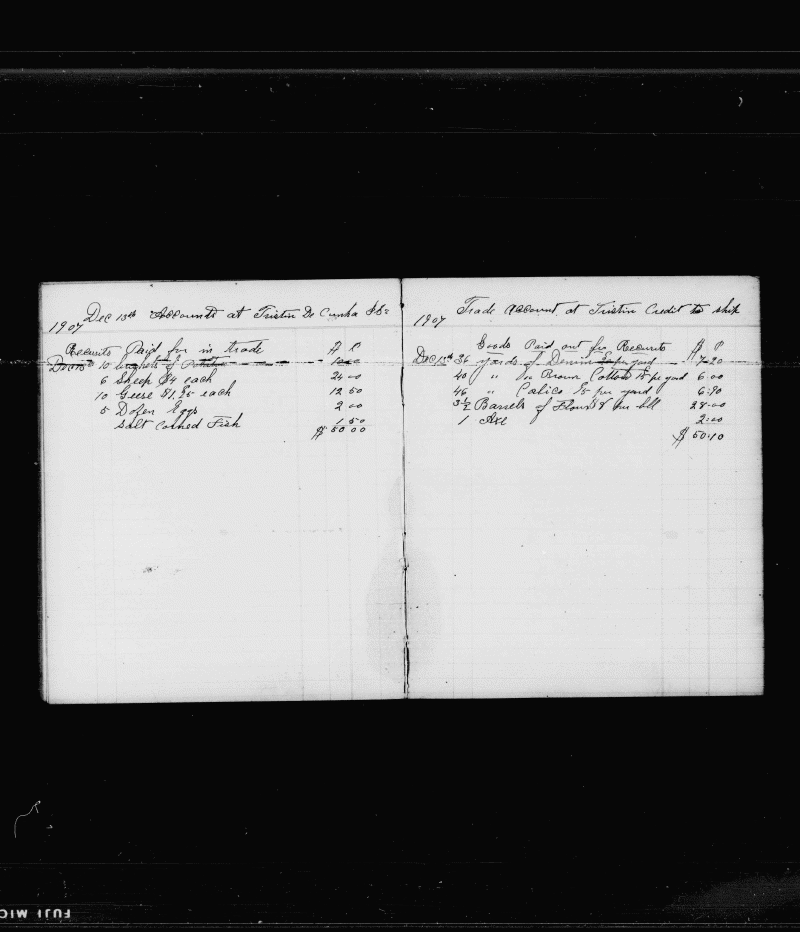 Dec 13th Accounts at Tristin De Cunha Ids
1907
Recruits Paid for in trade $ C
Dec 13th 10 bushels of Potatoes 10.00
6 Sheep $4 each 24.00
10 Geese $1.25 each 12.50
5 Dozen Eggs 2.00
Salt Corned Fish 1.50
$ 50.00
Trade Account at Tristin Credit to ship
1907
Goods Paid out for Recruits $
Dec 13th 36 yards of Denim per yard 7.20
40 " Brown Cotton 15 per yard 6.00
46 " Calico 15 per yard 6.90
3 1/2 Barrels of Flour $8 per bll 28.00
1 Axe 2.00
$ 50.10
FUJI MIC